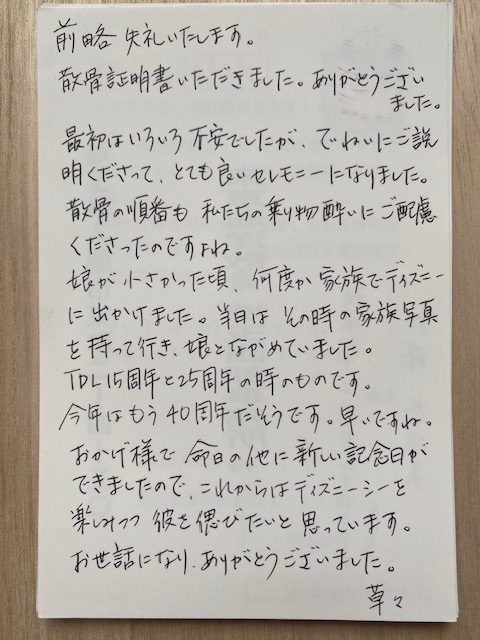 前略 失礼いたします。
散骨証明書いただきました。ありがとうござい
ました。
最初はいろいろ不安でしたが、でいねいにご説
明くださって、とても良いセレモニーになりました。
散骨の順番も 私たちの乗り物酔いにご配慮
くださったのですよね。
娘が小さかった頃、何度か家族でディズニー
に出かけました。当日は その時の家族写真
を持って行き、娘とながめていました。
TDL15周年と25周年の時のものです。
今年はもう40周年だそうです。早いですね。
おかげ様で 命日の他に新しい記念日が
できましたので、これからはディズニーシーを
楽しみつつ 彼を偲びたいと思っています。
お世話になり、ありがとうございました。
草々